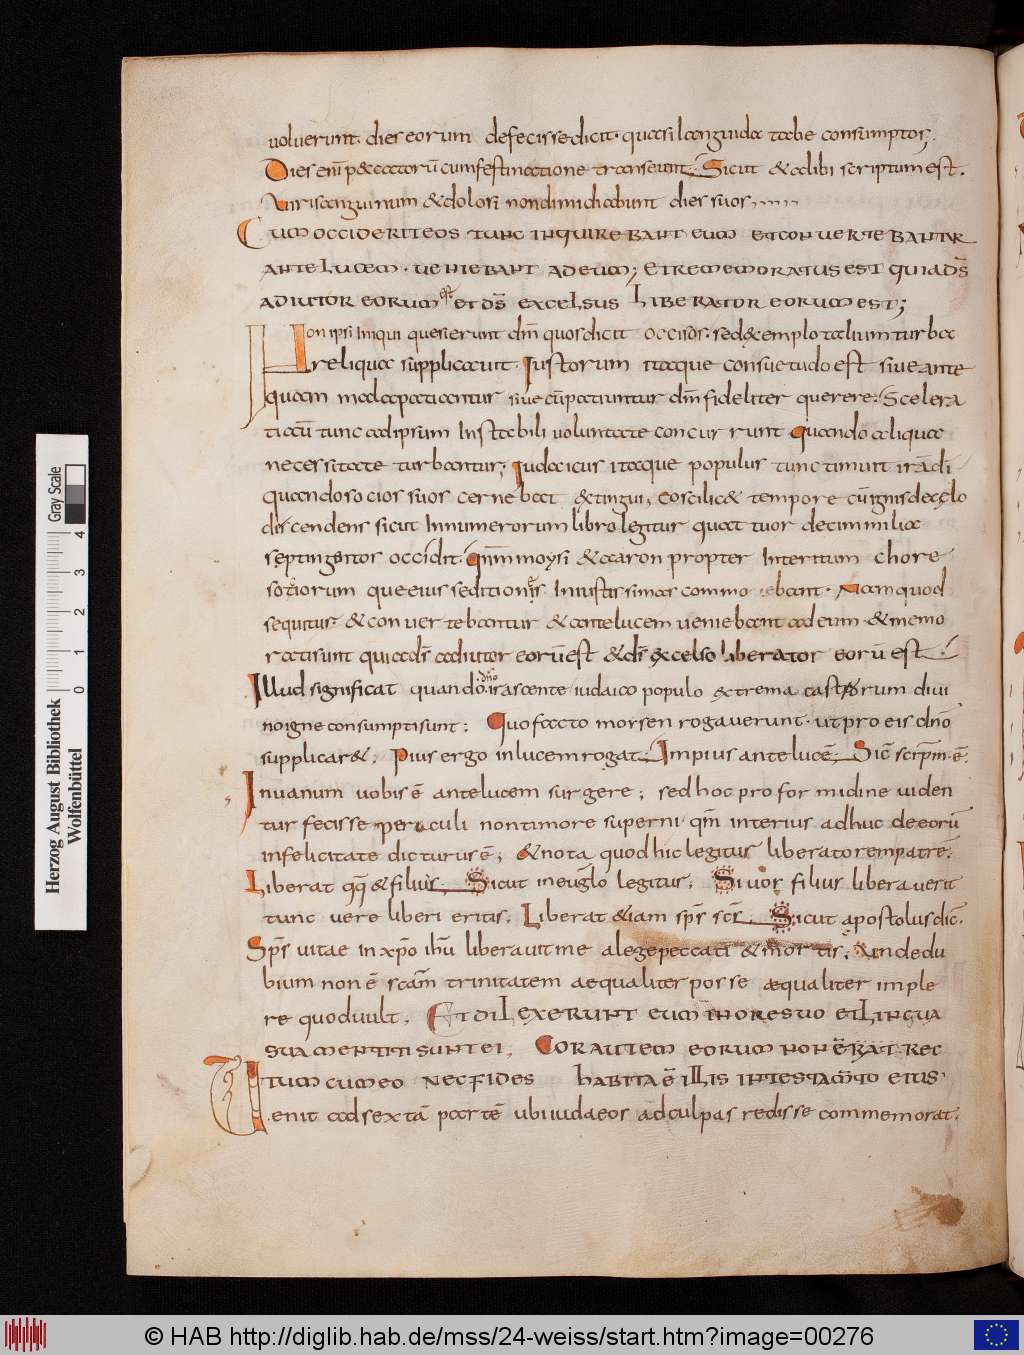 uoluerunt. dies eorum defecisse dicit. quasi languida tabe consumptos.
Dies enī peccatorū cum festinatione transeunt. Sicut & alibi scriptum est.
Viri sanguinum & dolosi non dimidiabunt dies suos
CUM OCCIDERIT EOS TUNC INQUIREBANT EUM ET CONUERTEBANTUR
ANTE LUCEM. UENIEBANT AD EUM; ET REMEMORATUS EST QUIA DS̄
ADIUTOR EORUM EST ET DS̄ EXCELSUS LIBERATOR EORUM EST;
Non ipsi iniqui quesierunt dm̄ quos dicit occisos. sed exemplo talium turba
reliqua supplicauit. Iustorum itaque consuetudo est siue ante
quam mala patiantur siue cū patiuntur dm̄ fideliter querere. Scelera
ti aū tunc ad ipsum instabili uoluntate concurrunt quando aliqua
necessitate turbantur; Iudaicus itaque populus tunc timuit irā dī
quando socios suos cernebat extingui, eos scilic& tempore cū ignis de cęlo
discendens sicut Innumerorum libro legitur quattuor decim milia
septingentos occidit. qnm̄ moysi & aaron propter interitum chore
sotiorum que eius seditionis iniustissimas commouebant. Nam quod
sequitur & conuertebantur & ante lucem ueniebant ad eum. & memo
rati sunt quia ds̄ adiutor eorū est & ds̄ excelso liberator eorū est.
Illud significat quando dn̄o irascente iudaico populo extrema castrorum diui
no igne consumpti sunt; Quo facto morsen rogauerunt. ut pro eis dn̄o
supplicar&; Pius ergo in lucem rogat. Impius ante lucē. Sic̄ scrīptm ē.
In uanum uobis ē ante lucem surgere; sed hoc pro formidine uiden
tur fecisse periculi non timore superni. qm̄ interius adhuc de eorū
infelicitate dicturus ē; & nota quod hic legitur liberatorem patrē.
Liberat qq̄ & filius. Sicut in euglo legitur. Si uos filius liberauerit
tunc uere liberi eritis. Liberat etiam sps̄ scs̄. Sicut apostolus dic̄.
Sps̄ uitae in xp̄o ihū liberauit me a lege peccati & mortis; Unde du
bium non ē scām trinitatem aequaliter posse aequaliter imple
re quod uult. ET DILEXERUNT EUM IN ORE SUO ET LINGUA
SUA MENTITI SUNT EI, COR AUTEM EORUM NON ERAT REC
TUM CUM EO NEC FIDES HABITA Ē ILLIS IN TESTAMTO EIUS
Uenit ad sextā partē ubi iudaeos ad culpas redisse commemorat.
Herzog August Bibliothek
Wolfenbüttel
Gray Scale
0 1 2 3 4
© HAB http://diglib.hab.de/mss/24-weiss/start.htm?image=00276